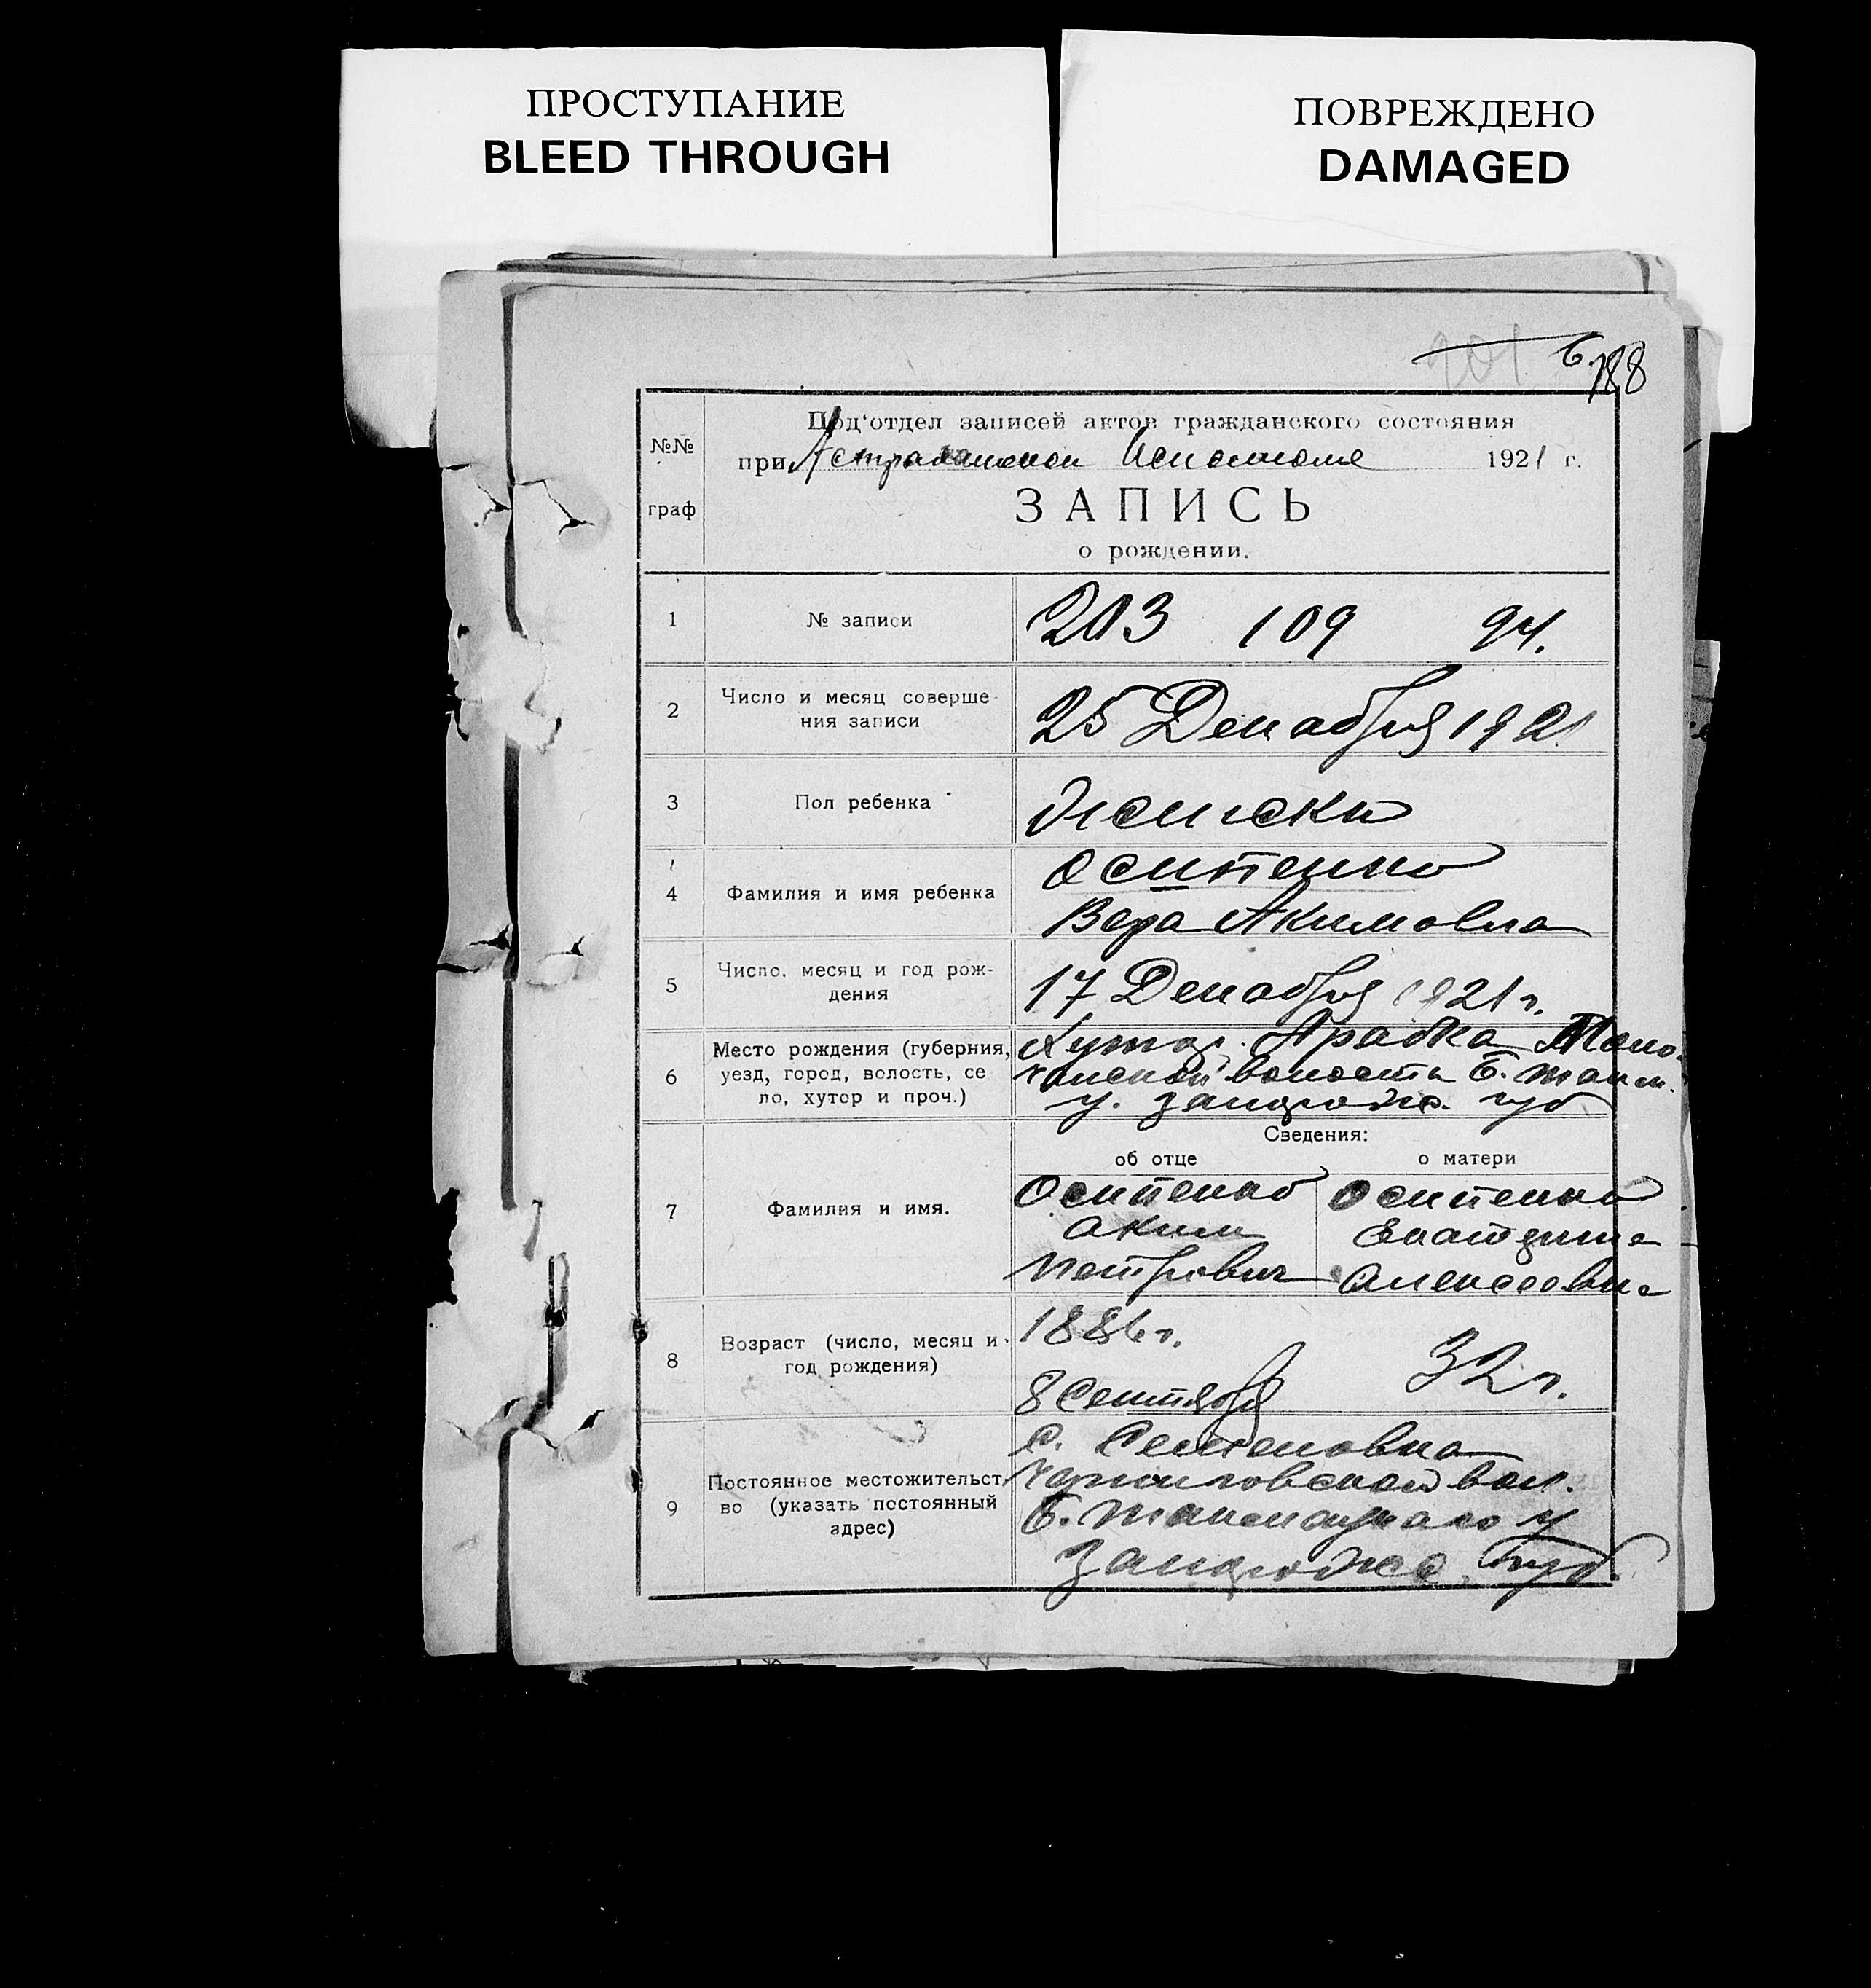 ПРОСТУПАНИЕ
BLEED THROUGH
ПОВРЕЖДЕНО
DAMAGED
201 188
Под'отдел записей актов гражданского состояния
№№ граф
при Астраханском Исполкоме 1921 г.
ЗАПИСЬ
о рождении.
1 № записи 203 109 94.
2 Число и месяц соверше-
ния записи
25 Декабря 1921
3 Пол ребенка Женски
4 Фамилия и имя ребенка
Осипенко
Вера Акимовна
5 Число, месяц и год рож-
дения
17 Декабря 1921 г.
6 Место рождения (губерния,
уезд, город, волость, се
ло, хутор и проч.)
Хутор. Арабка Моло-
чанской волости Б. Токм.
у. Запорож. губ
Сведения:
об отце о матери
7 Фамилия и имя.
Осипенко
Аким
Петрович
Осипенко
Екатерина
Алексеевна
8 Возраст (число, месяц и
год рождения)
1886 г.
8 Сентября
32 г.
9 Постоянное местожительст-
во (указать постоянный
адрес)
с. Семеновка
вол.
Б. Токмацкаго у
Запорожс. Губ.